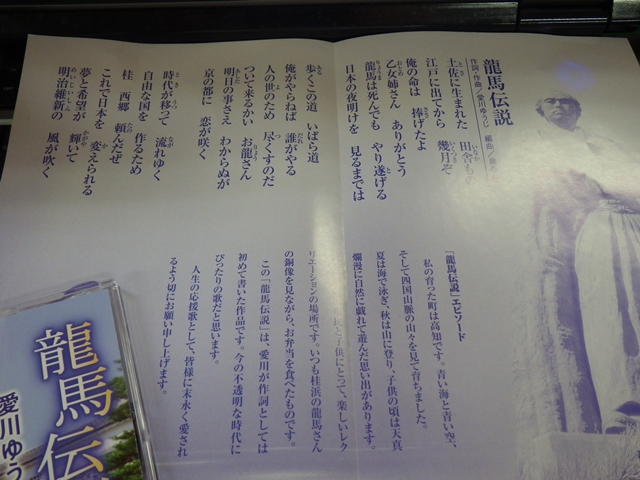 龍馬伝説
作詞・作曲／愛川ゆうじ 編曲／
土佐に生まれた 田舎もの
江戸に出てから 幾月ぞ
俺の命は 捧げたよ
乙女姉さん ありがとう
龍馬は死んでも やり遂げる
日本の夜明けを 見るまでは
歩くこの道 いばら道
俺がやらねば 誰がやる
人の世のため 尽くすのだ
ついて来るかい お龍さん
明日の事さえ わからぬが
京の都に 恋が咲く
時代が移って 流れゆく
自由な国を 作るため
桂 西郷 頼んだぜ
これで日本を 変えられる
夢と希望が 輝いて
明治維新の 風が吹く
「龍馬伝説」エピソード
私の育った町は高知です。青い海と青い空、
そして四国山脈の山々を見て育ちました。
夏は海で泳ぎ、秋は山に登り、子供の頃は天真
爛漫に自然に戯れて遊んだ思い出があります。
民と子供にとって、楽しいレク
リエーションの場所です。いつも桂浜の龍馬さん
の銅像を見ながら、お弁当を食べたものです。
この「龍馬伝説」は、愛川が作詞としては
初めて書いた作品です。今の不透明な時代に
ぴったりの歌だと思います。
人生の応援歌として、皆様に末永く愛され
るよう切にお願い申し上げます。
龍馬伝
愛川ゆう